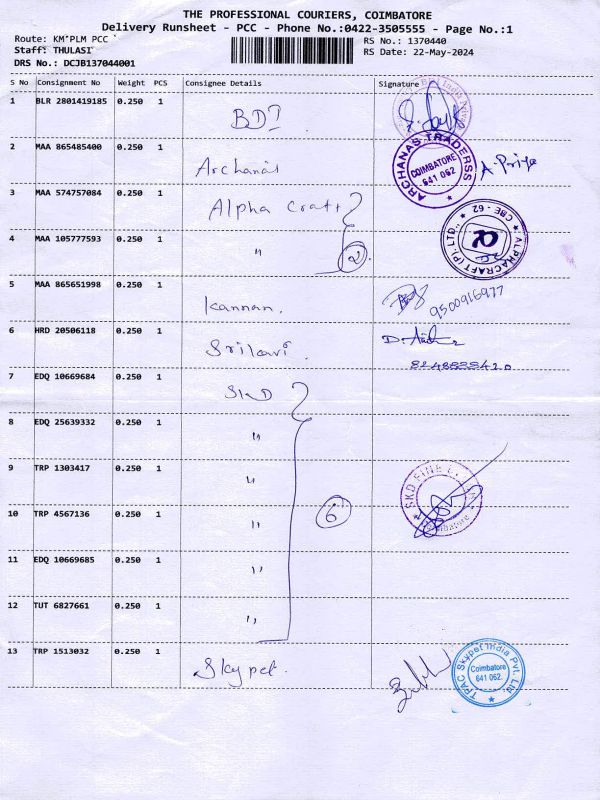 THE PROFESSIONAL COURIERS, COIMBATORE
Delivery Runsheet - PCC - Phone No.:0422-3505555 - Page No.:1
Route: KM*PLM PCC
RS No.: 1370440
Staff: THULASI
RS Date: 22-May-2024
DRS No.: DCJB137044001
S No Consignment No Weight PCS Consignee Details Signature
1 BLR 2801419185 0.250 1 BD?
2 MAA 865485400 0.250 1 Archanas ARCHANAS TRADERSS COIMBATORE 641 062 A. Priya
3 MAA 574757084 0.250 1 Alpha Craft
4 MAA 105777593 0.250 1 " 2 ALPHACRAFT (P) LTD., CBE - 62
5 MAA 865651998 0.250 1 Kannan. 9500916977
6 HRD 20506118 0.250 1 Srilavi. D.
7 EDQ 10669684 0.250 1 SKD
8 EDQ 25639332 0.250 1 "
9 TRP 1303417 0.250 1 " SKD FINE Coimbatore
10 TRP 4567136 0.250 1 " 6
11 EDQ 10669685 0.250 1 "
12 TUT 6827661 0.250 1 "
13 TRP 1513032 0.250 1 Skypet. TPAC Skypet India Pvt. Ltd. Coimbatore 641 062.